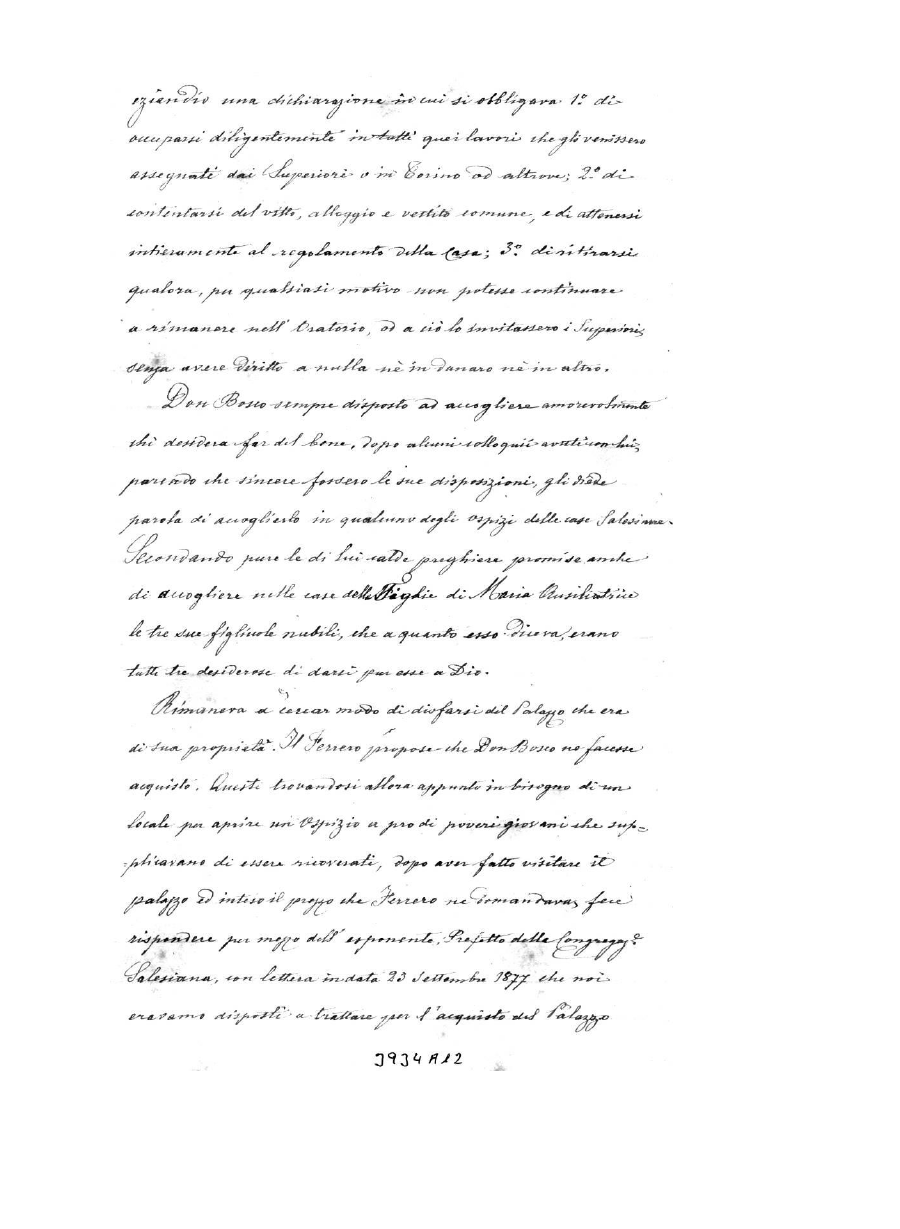 eziandio una dichiarazione in cui si obbligava 1º di
occuparsi diligentemente in tutti quei lavori che gli venissero
assegnati dai Superiori o in Torino od altrove; 2º di
contentarsi del vitto, alloggio e vestito comune, e di attenersi
intieramente al regolamento della Casa; 3º di ritirarsi
qualora, per qualsiasi motivo non potesse continuare
a rimanere nell' Oratorio, od a ciò lo invitassero i Superiori,
senza avere diritto a nulla nè in danaro nè in altro.
Don Bosco sempre disposto ad accogliere amorevolmente
chi desidera far del bene, dopo alcuni colloquii avuti con lui,
parendo che sincere fossero le sue disposizioni, gli diede
parola di accoglierlo in qualcuno degli ospizi delle case Salesiane.
Secondando pure le di lui calde preghiere promise anche
di accogliere nelle case delle Figlie di Maria Ausiliatrice
le tre sue figliuole nubili, che a quanto esso diceva, erano
tutte tre desiderose di darsi pur esse a Dio.
Rimaneva a cercar modo di disfarsi del Palazzo che era
di sua proprietà. Il Ferrero propose che Don Bosco ne facesse
acquisto. Questi trovandosi allora appunto in bisogno di un
locale per aprire un Ospizio a pro di poveri giovani che sup=
=plicavano di essere ricoverati, dopo aver fatto visitare il
palazzo ed inteso il prezzo che Ferrero ne domandava, fece
rispondere per mezzo dell' esponente, Prefetto della Congregaz.e
Salesiana, con lettera in data 23 Settembre 1877 che noi
eravamo disposti a trattare per l'acquisto del Palazzo
3934 A12